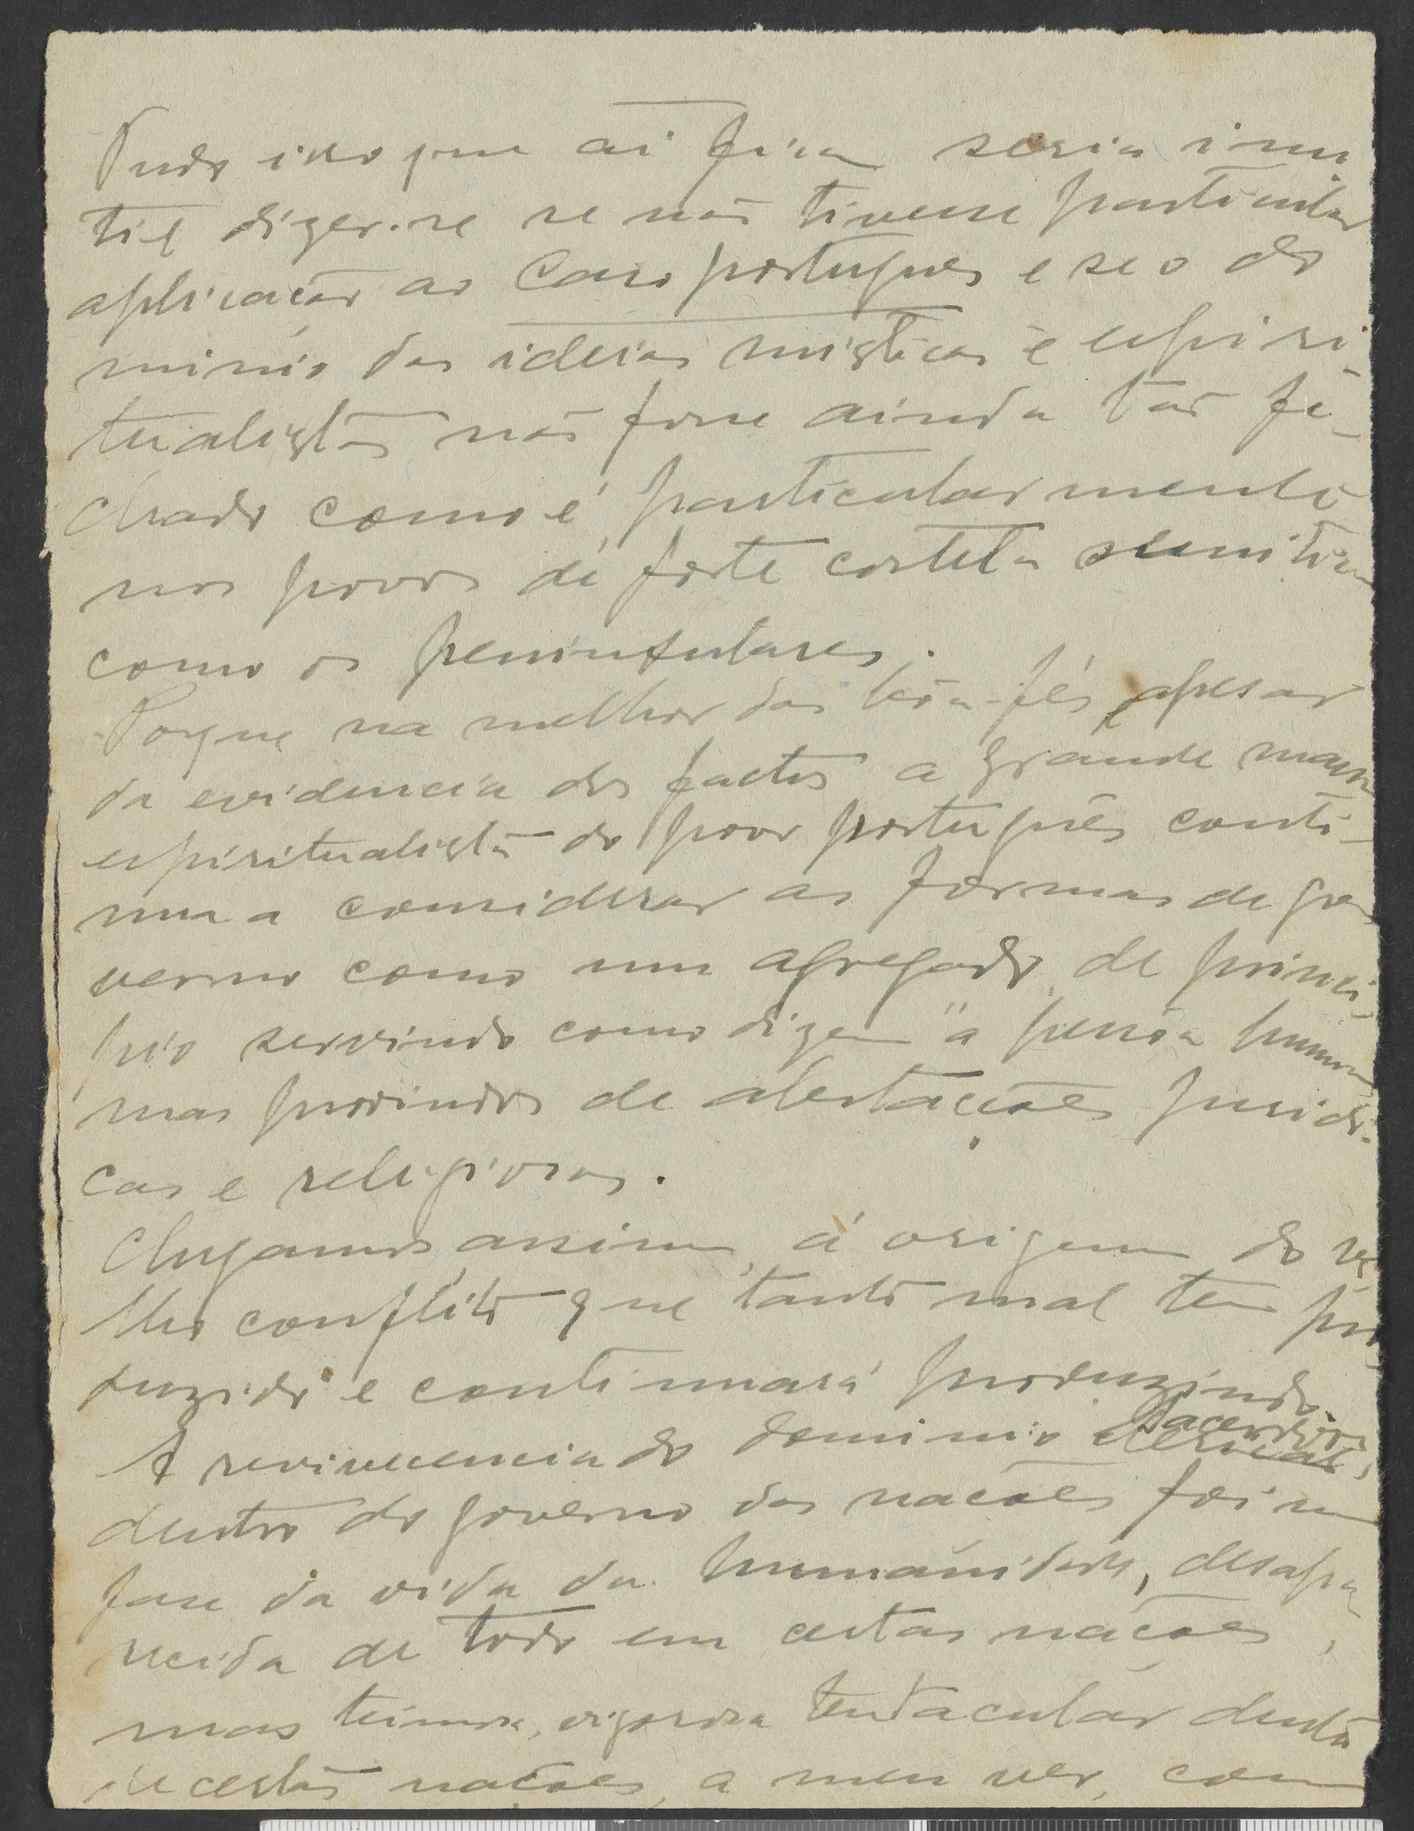 Tudo isto que aí fica seria inu
til dizer-se se não tivesse particular
aplicação ao caso português e se o do
minio das ideias misticas e espiri-
tualistas não fosse ainda tão fe-
chado como é particularmente
nos povos de forte costela semitica
como os peninsulares.
Porque na melhor das bôa-fés, apesar
da evidencia dos factos a grande massa
espiritualista do povo português conti-
nua a considerar as formas de go
verno como um agregado de princi
pio servindo como dizem "a pessôa humana
mas provindos de
cas e religiosas.
Chegamos assim, á origem do ve
lho conflito que tanto mal tem pro
duzido e continuará produzindo.
A revivescencia do dominio clerical sacerdotal,
dentro do governo das nações foi uma
fase da vida da humanidade, desapa
recida de todo em certas nações,
mas teimosa, vigorosa tentacular dentro
de certas nações, a meu ver, com